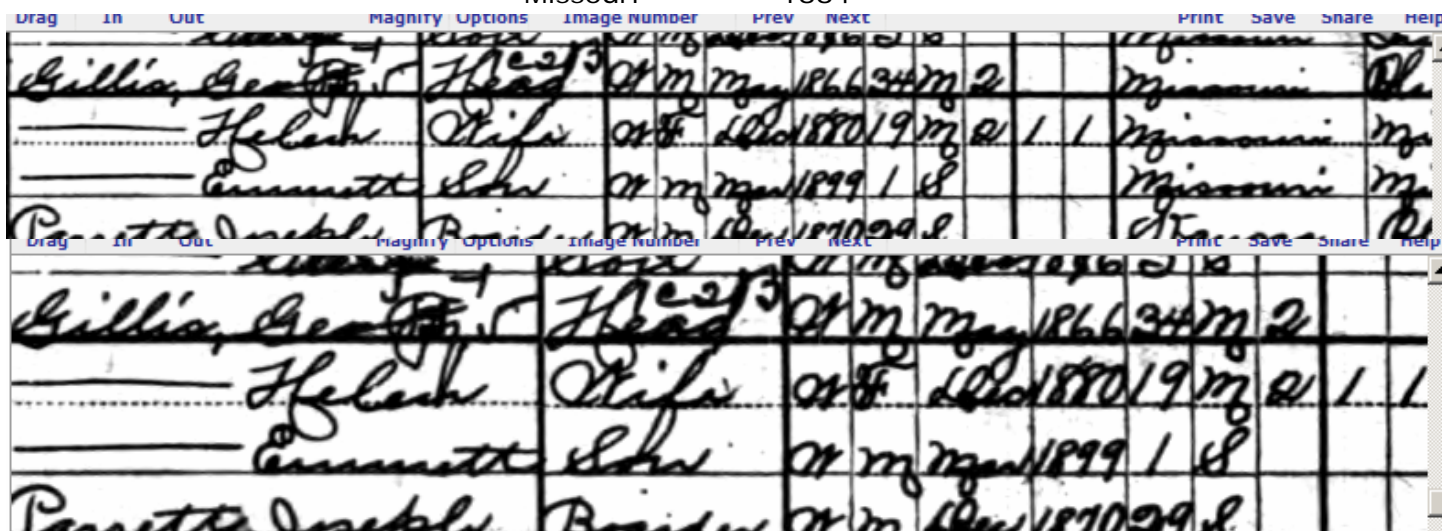 Missouri 1884
Drag In Out Magnify Options Image Number Prev Next Print Save Share Help
W M 1896 3 S Missouri
Gillis, Geo Head W M May 1866 34 M 2 Missouri
Helen Wife W F Dec 1880 19 M 2 1 1 Missouri
Emmett Son W M 1899 1 S Missouri
Joseph W M Dec 1870 29 S
Drag In Out Magnify Options Image Number Prev Next Print Save Share Help
W M 1896 3 S
Gillis, Geo Head W M May 1866 34 M 2
Helen Wife W F Dec 1880 19 M 2 1 1
Emmett Son W M 1899 1 S
Joseph W M Dec 1870 29 S